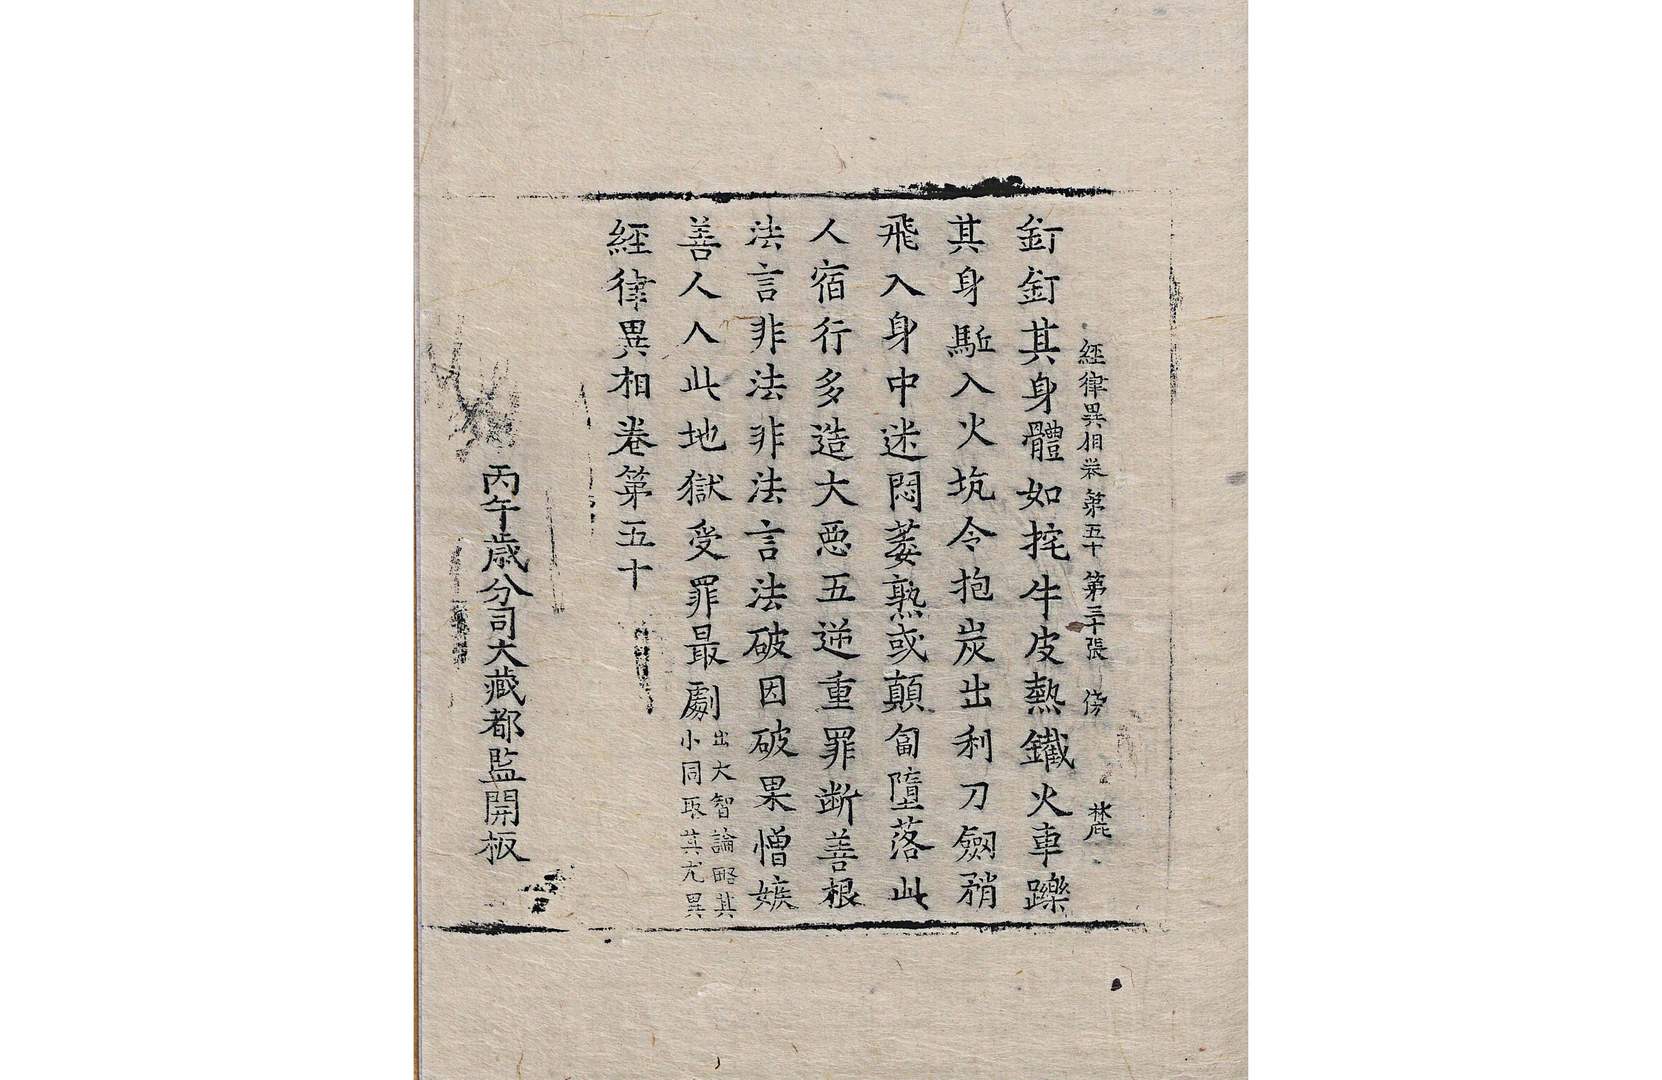 經律異相卷第五十 第三十張 傍 㯟
釘釘其身體如挓牛皮熱鐵火車轢
其身駈入火坑令抱炭出利刀劒矟
飛入身中迷悶萎熟或顛匐墮落此
人宿行多造大惡五逆重罪斷善根
法言非法非法言法破因破果憎嫉
善人入此地獄受罪最劇出大智論略其
小同取其尤異
經律異相卷第五十
丙午歲分司大藏都監開板